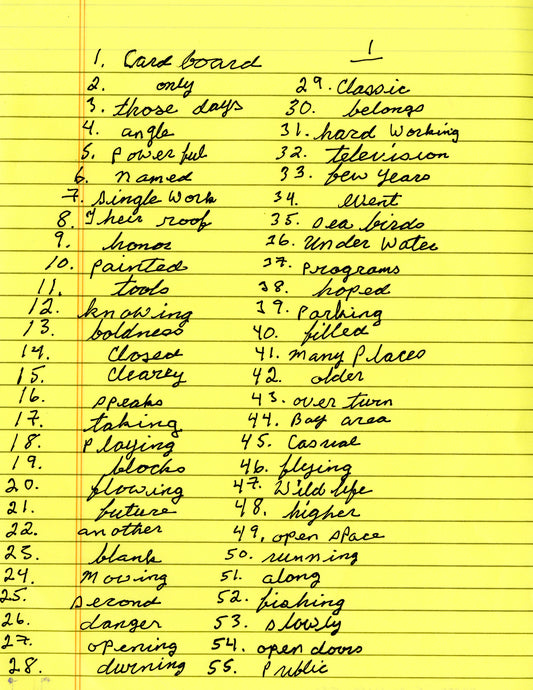 1
1. Card board
2. only
3. those days
4. angle
5. powerful
6. named
7. single work
8. Their roof
9. honor
10. painted
11. tools
12. knowing
13. boldness
14. closed
15. clearey
16. speaks
17. taking
18. playing
19. blocks
20. flowing
21. future
22. another
23. blank
24. moving
25. second
26. danger
27. opening
28. durning
29. Classic
30. belongs
31. hard working
32. television
33. few years
34. event
35. sea birds
36. Under Water
37. programs
38. hoped
39. parking
40. filled
41. many places
42. older
43. over turn
44. Bay area
45. Casual
46. flying
47. Wild life
48. higher
49, open space
50. running
51. along
52. fishing
53. slowly
54. open doors
55. public